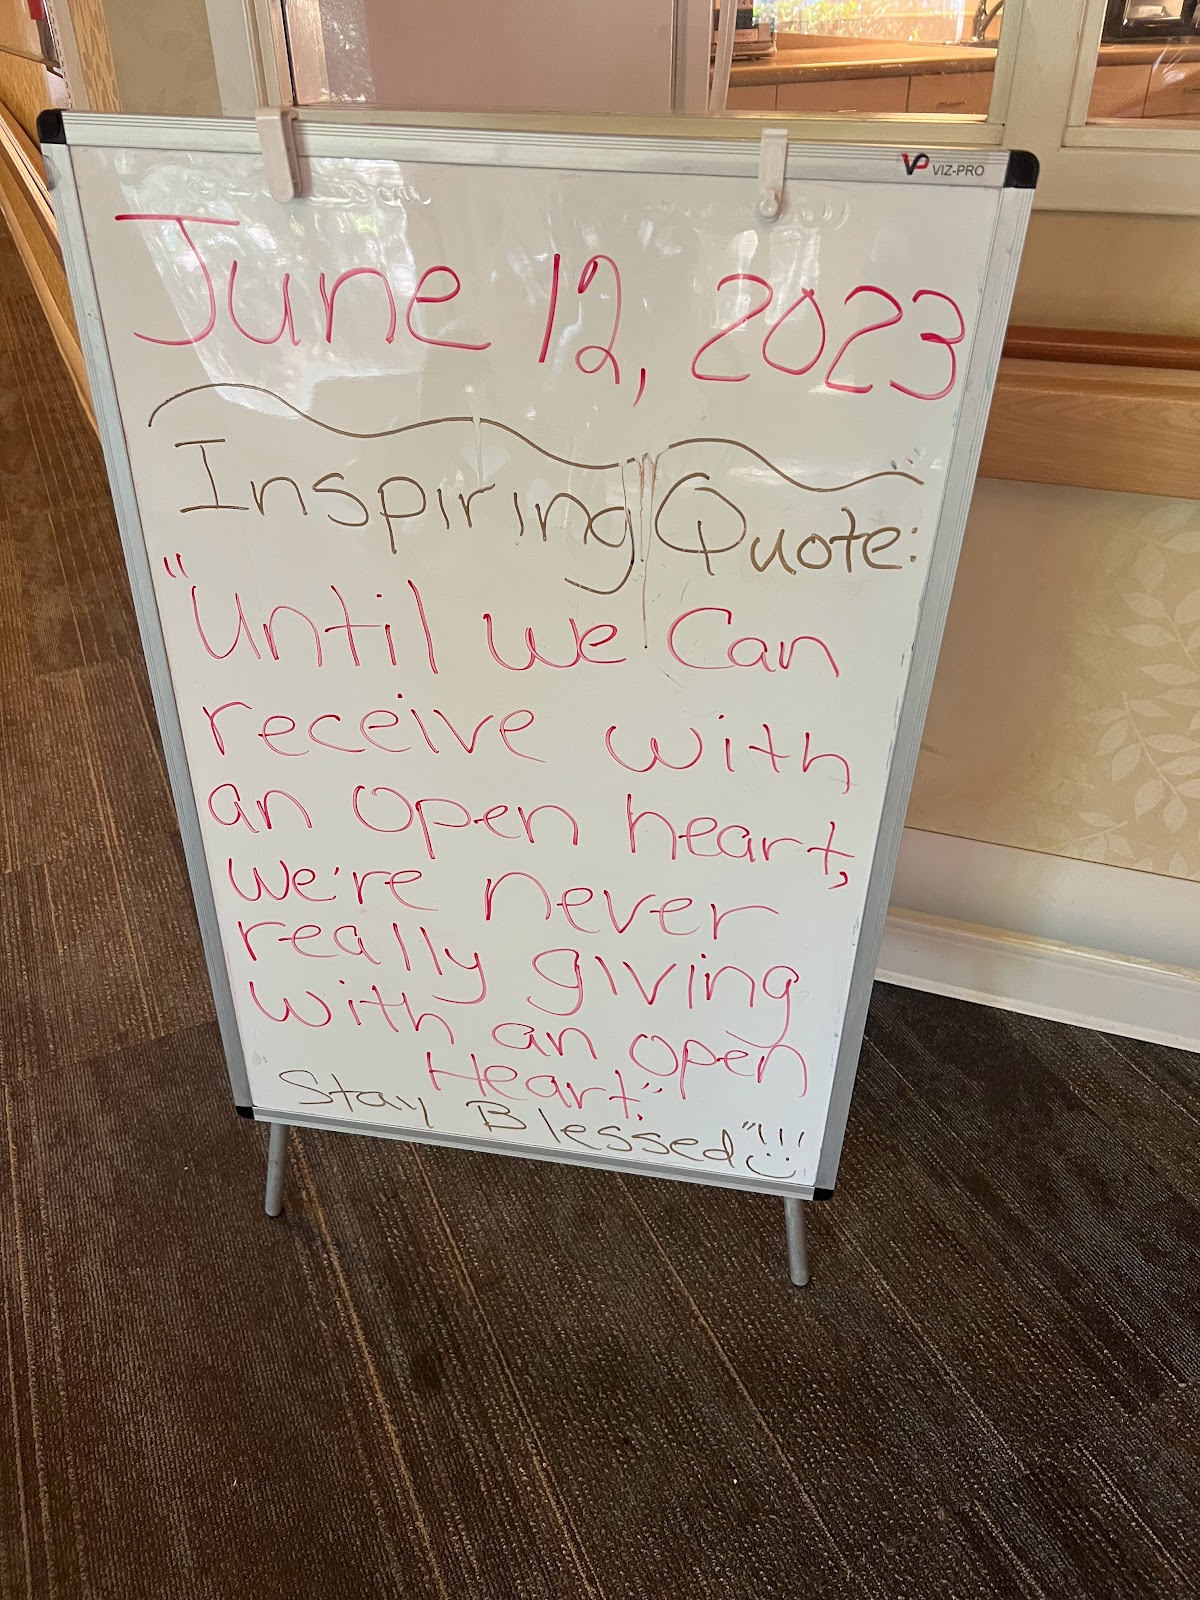 VP VIZ-PRO
June 12, 2023
Inspiring Quote:
"Until we Can
receive with
an open heart,
we're never
really giving
with an open
Heart."
Stay Blessed"!!!